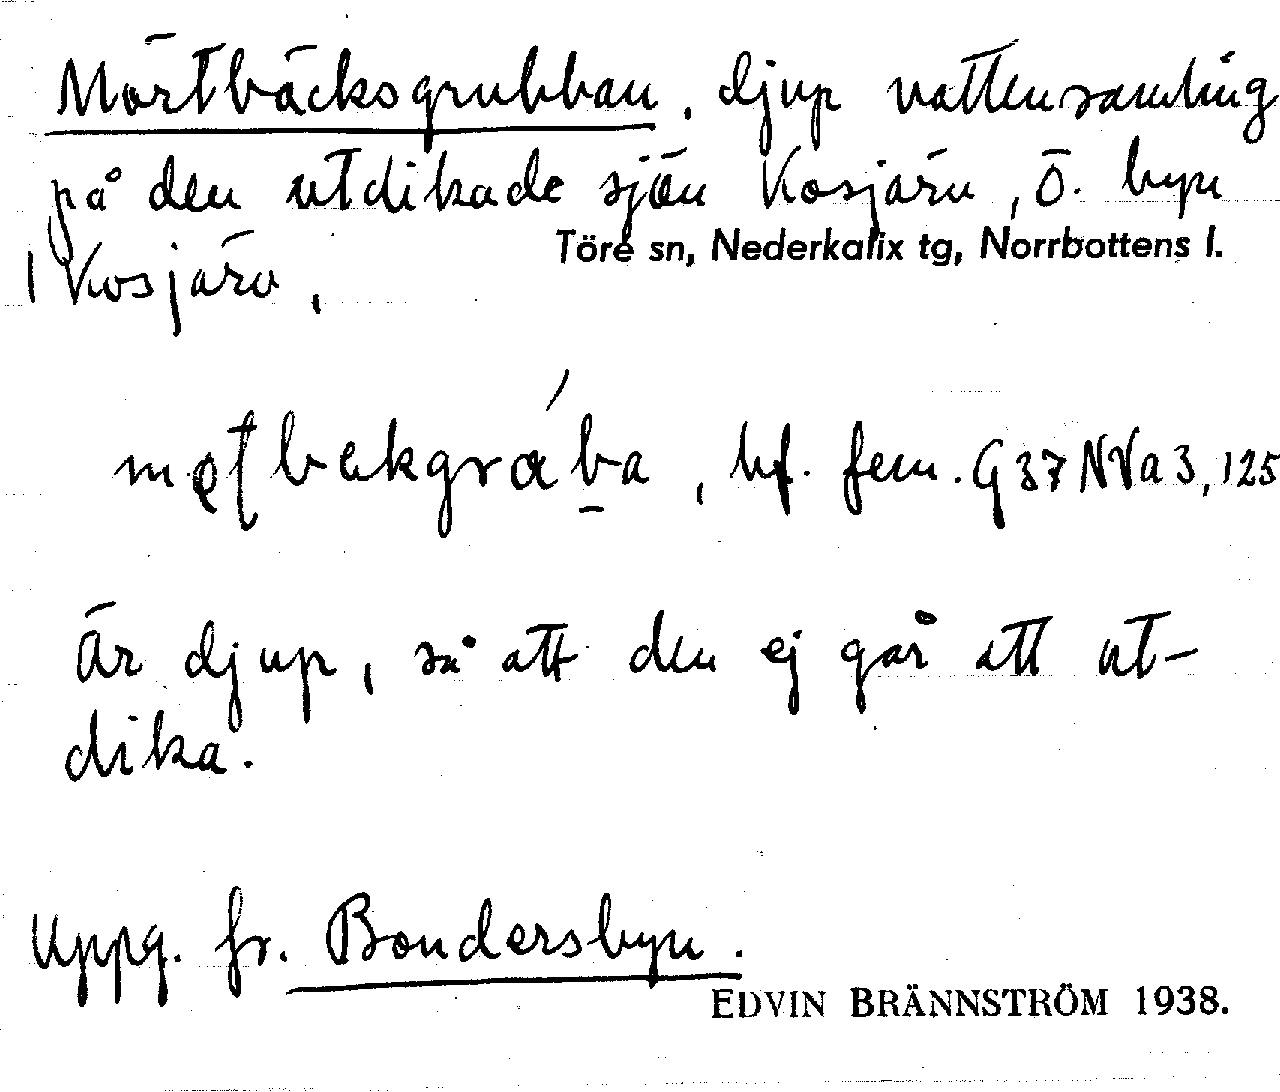 Mörtbäcksgrubban, djup vattensamling
på den utdikade sjön Kosjärv, Ö. byn
Töre sn, Nederkalix tg, Norrbottens l.
Kosjärv.
bf. fem. G37NVa3,125
Är djup, så att den ej går att ut-
dika.
Uppg. fr. Bondersbyn.
EDVIN BRÄNNSTRÖM 1938.